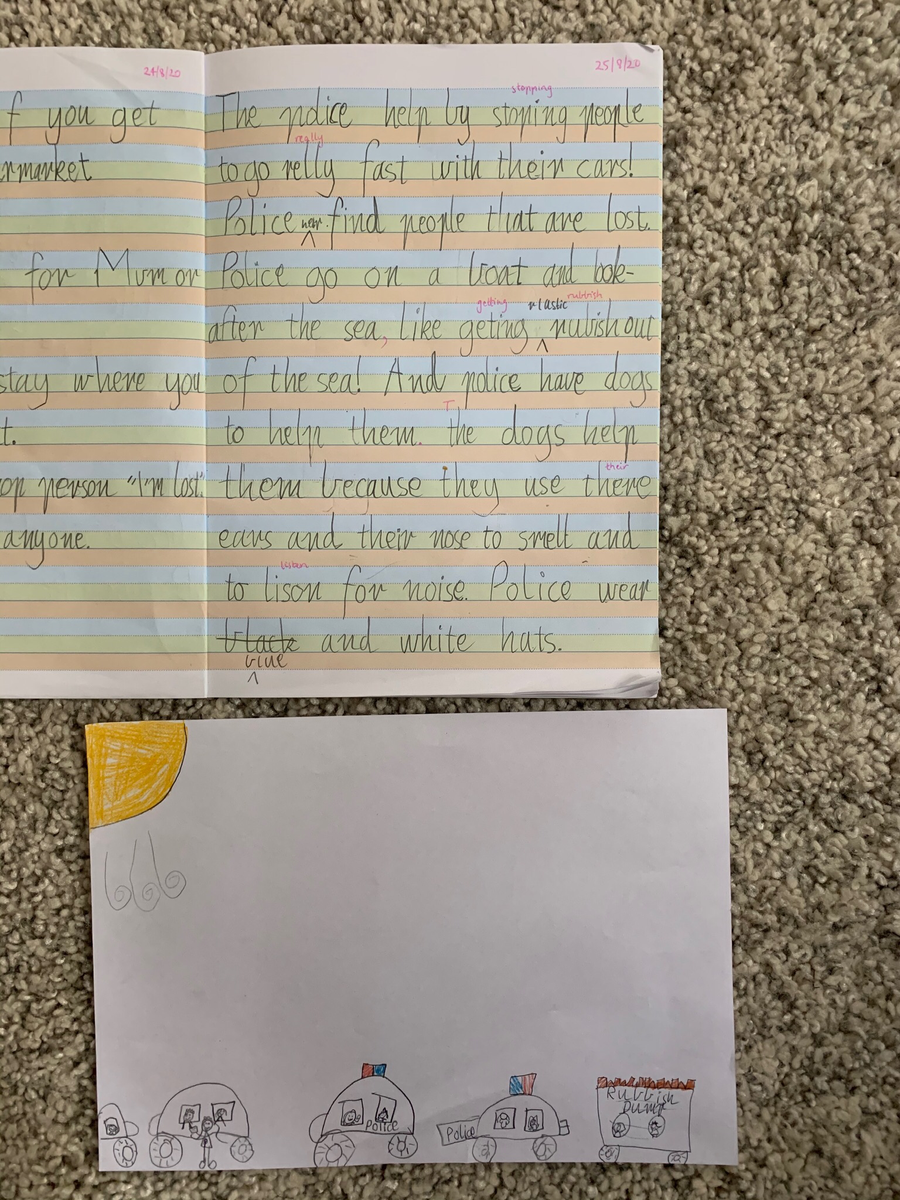 24/8/20
f you get
rmarket
for Mum or
stay where you
t.
op person "I'm lost".
anyone.
25/8/20
stopping
The police help by stoping people
really
to go relly fast with their cars!
Police help find people that are lost.
Police go on a boat and look
getting plastic rubbish
after the sea, like geting rubish out
of the sea! And police have dogs
T
to help them. the dogs help
their
them because they use there
ears and their nose to smell and
listen
to lison for noise. Police wear
black and white hats.
blue
Police
Police
Rubbish
Dump